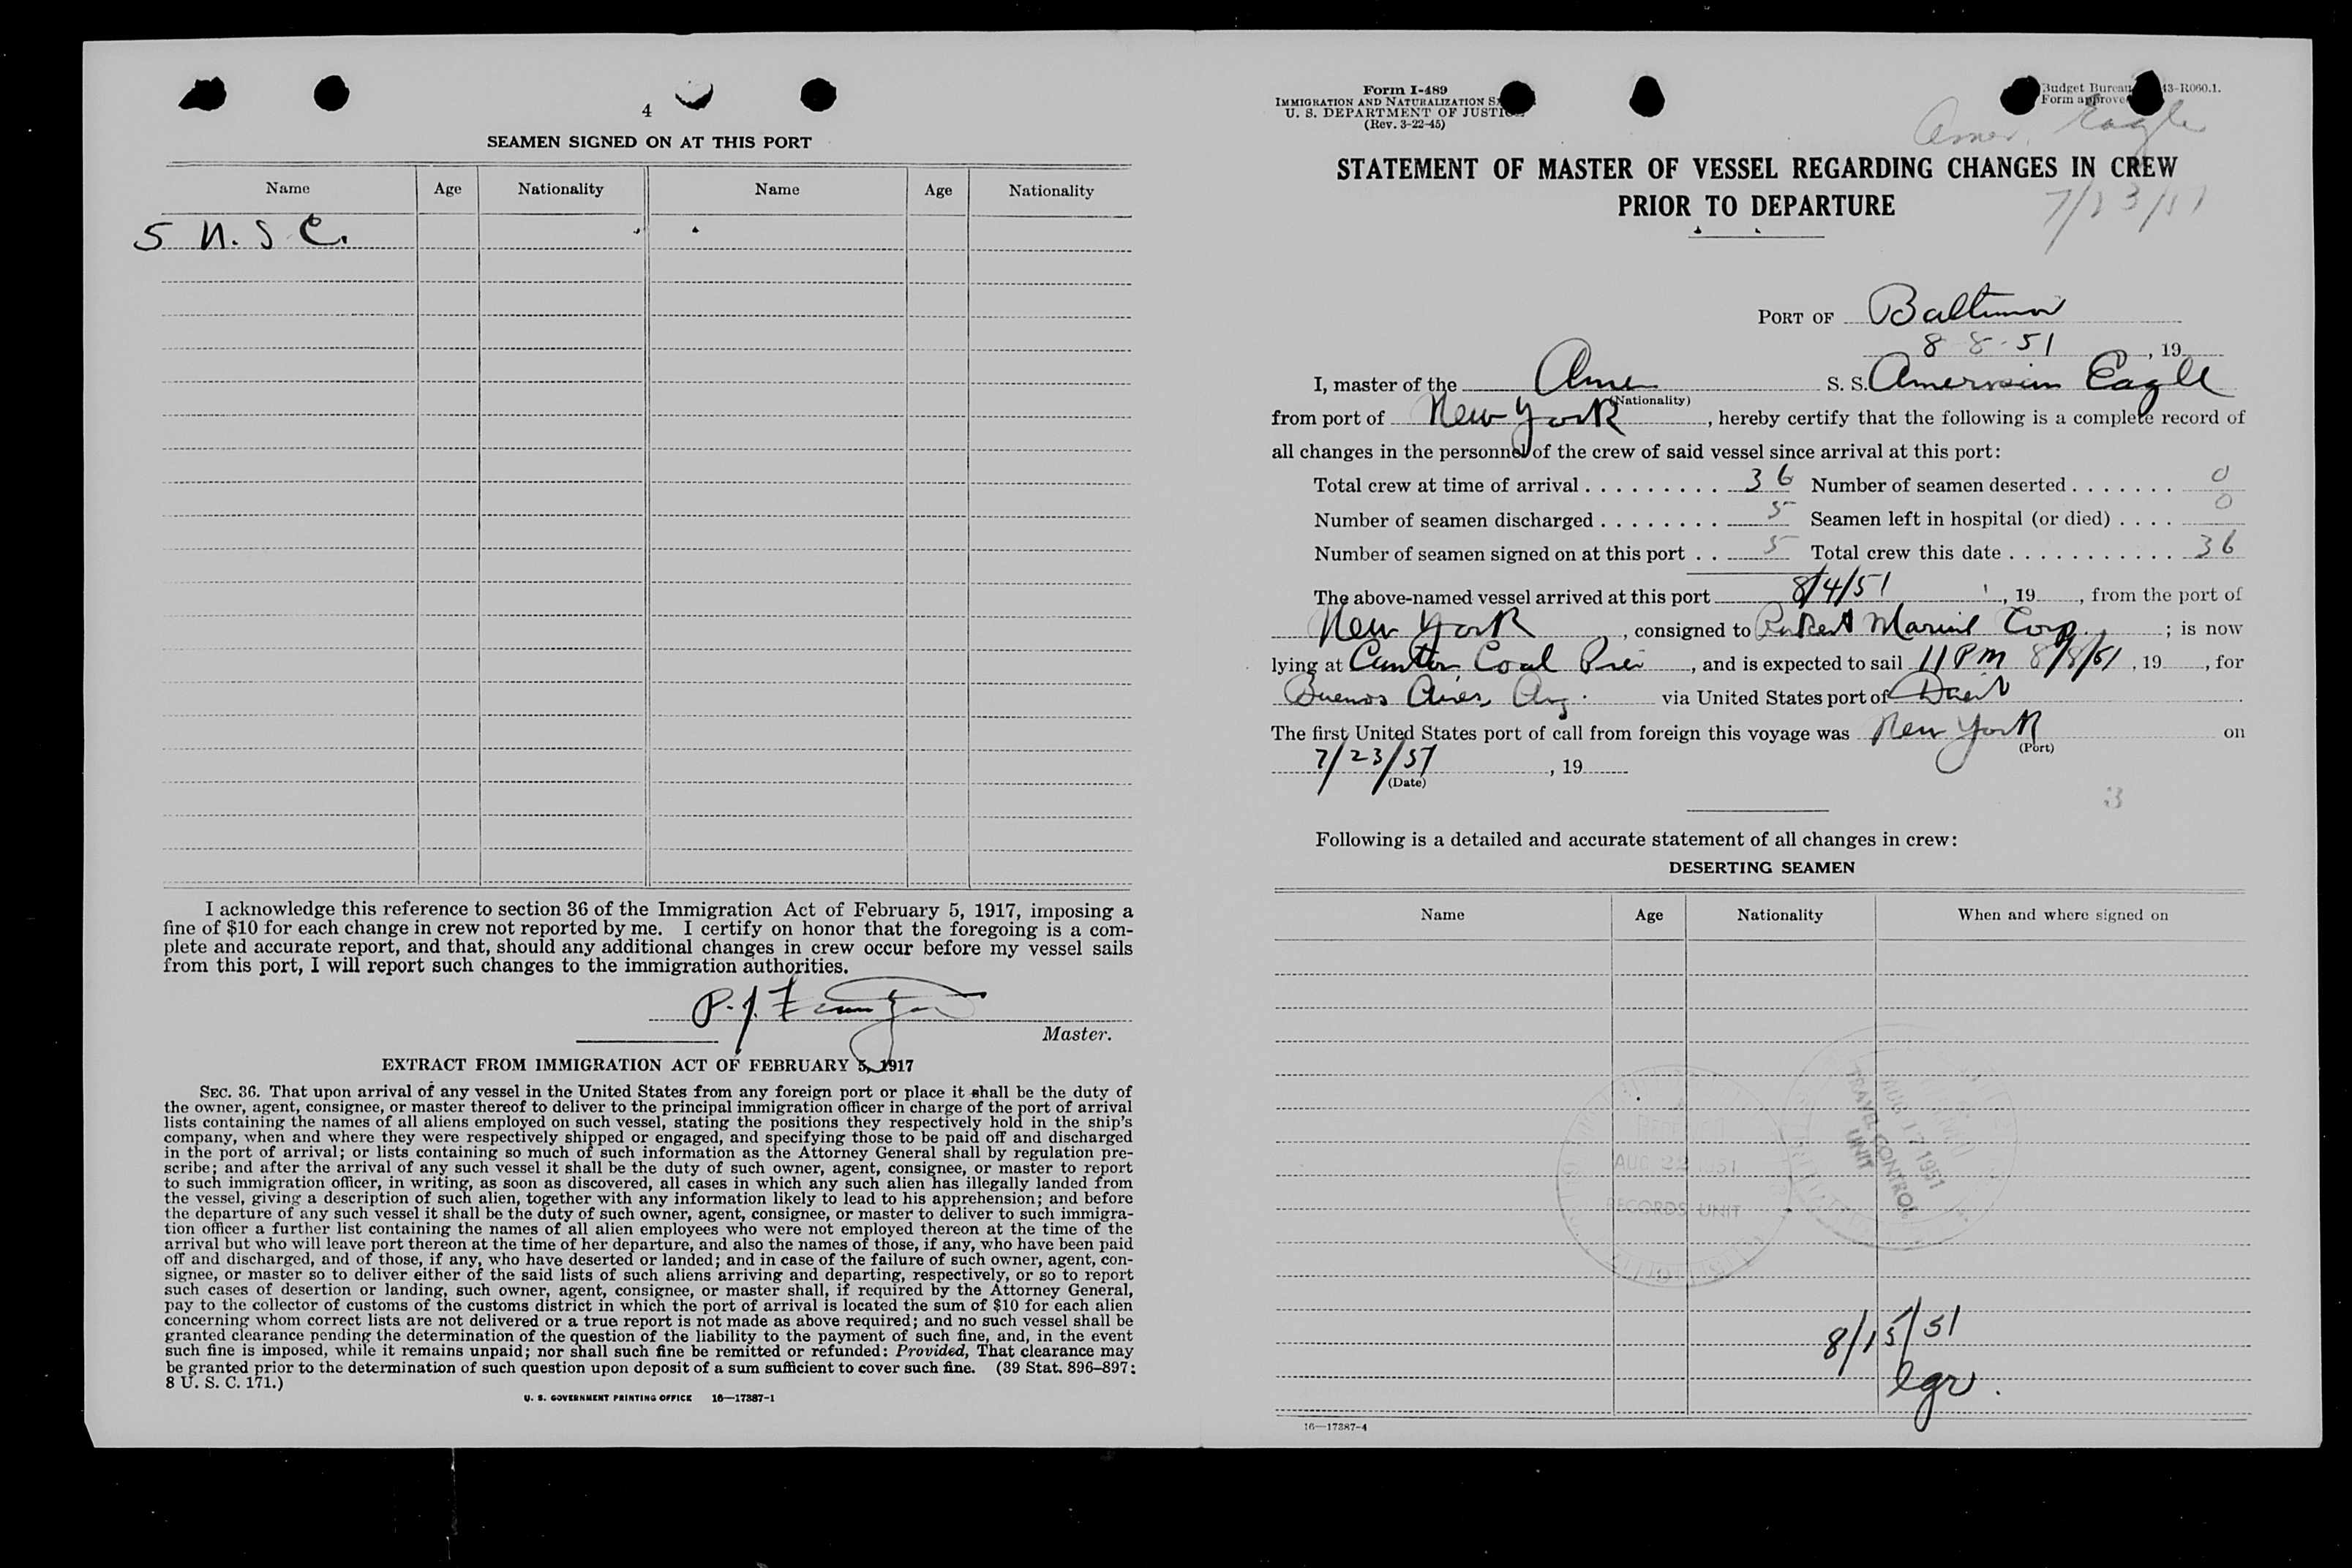 4
SEAMEN SIGNED ON AT THIS PORT
Name Age Nationality Name Age Nationality
5 N. S C.
I acknowledge this reference to section 36 of the Immigration Act of February 5, 1917, imposing a
fine of $10 for each change in crew not reported by me. I certify on honor that the foregoing is a com-
plete and accurate report, and that, should any additional changes in crew occur before my vessel sails
from this port, I will report such changes to the immigration authorities.
P. J.
Master.
EXTRACT FROM IMMIGRATION ACT OF FEBRUARY 5, 1917
SEC. 36. That upon arrival of any vessel in the United States from any foreign port or place it shall be the duty of
the owner, agent, consignee, or master thereof to deliver to the principal immigration officer in charge of the port of arrival
lists containing the names of all aliens employed on such vessel, stating the positions they respectively hold in the ship's
company, when and where they were respectively shipped or engaged, and specifying those to be paid off and discharged
in the port of arrival; or lists containing so much of such information as the Attorney General shall by regulation pre-
scribe; and after the arrival of any such vessel it shall be the duty of such owner, agent, consignee, or master to report
to such immigration officer, in writing, as soon as discovered, all cases in which any such alien has illegally landed from
the vessel, giving a description of such alien, together with any information likely to lead to his apprehension; and before
the departure of any such vessel it shall be the duty of such owner, agent, consignee, or master to deliver to such immigra-
tion officer a further list containing the names of all alien employees who were not employed thereon at the time of the
arrival but who will leave port thereon at the time of her departure, and also the names of those, if any, who have been paid
off and discharged, and of those, if any, who have deserted or landed; and in case of the failure of such owner, agent, con-
signee, or master so to deliver either of the said lists of such aliens arriving and departing, respectively, or so to report
such cases of desertion or landing, such owner, agent, consignee, or master shall, if required by the Attorney General,
pay to the collector of customs of the customs district in which the port of arrival is located the sum of $10 for each alien
concerning whom correct lists are not delivered or a true report is not made as above required; and no such vessel shall be
granted clearance pending the determination of the question of the liability to the payment of such fine, and, in the event
such fine is imposed, while it remains unpaid; nor shall such fine be remitted or refunded: Provided, That clearance may
be granted prior to the determination of such question upon deposit of a sum sufficient to cover such fine. (39 Stat. 896–897;
8 U. S. C. 171.)
U. S. GOVERNMENT PRINTING OFFICE 16—17387-1
Form I-489
IMMIGRATION AND NATURALIZATION
U. S. DEPARTMENT OF JUSTICE
(Rev. 3-22-45)
Budget Bureau 43-R060.1.
Form approved
Amer. Eagle
7/23/51
STATEMENT OF MASTER OF VESSEL REGARDING CHANGES IN CREW
PRIOR TO DEPARTURE
PORT OF Baltimore
8 - 8 - 51, 19
I, master of the Ame S. S. American Eagle
(Nationality)
from port of New York, hereby certify that the following is a complete record of
all changes in the personnel of the crew of said vessel since arrival at this port:
Total crew at time of arrival . . . . . . . . . 36 Number of seamen deserted . . . . . . . 0
Number of seamen discharged . . . . . . . . 5 Seamen left in hospital (or died) . . . . 0
Number of seamen signed on at this port . . 5 Total crew this date . . . . . . . . . . . 36
The above-named vessel arrived at this port 8/4/51, 19, from the port of
New York, consigned to Marine Corp.; is now
lying at Canton Coal Pier, and is expected to sail 11 PM 8/8/51, 19, for
Buenos Aires, Arg. via United States port of
The first United States port of call from foreign this voyage was New York on
(Port)
7/23/51, 19
(Date)
3
Following is a detailed and accurate statement of all changes in crew:
DESERTING SEAMEN
Name Age Nationality When and where signed on
AUG 17 1951
TRAVEL CONTROL
UNIT
AUG 22 1951
RECORDS UNIT
8/15/51
16—17387-4